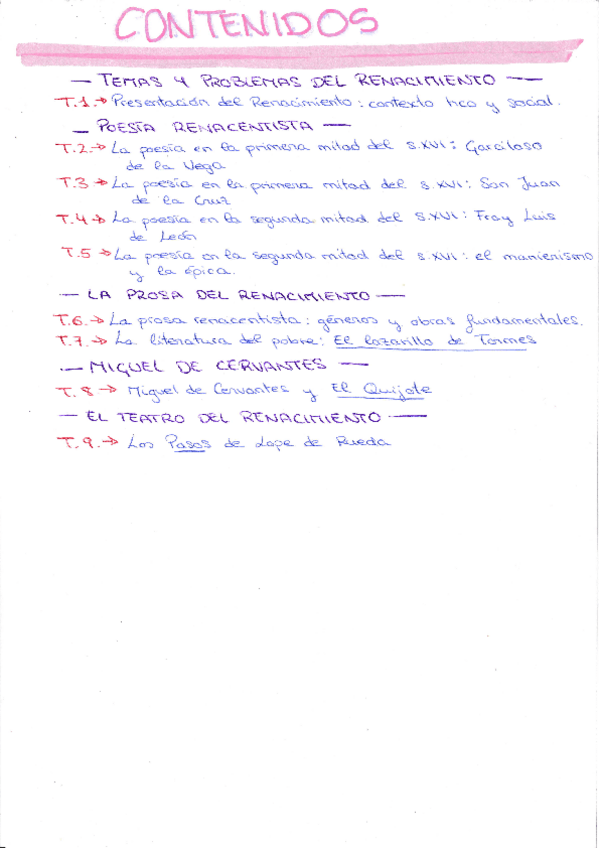 CONTENIDOS
— TEMAS Y PROBLEMAS DEL RENACIMIENTO —
T.1.→ Presentación del Renacimiento: contexto hco y social.
— POESÍA RENACENTISTA —
T.2.→ La poesía en la primera mitad del s.XVI: Garcilaso
de la Vega
T.3 → La poesía en la primera mitad del s.XVI: San Juan
de la Cruz
T.4 → La poesía en la segunda mitad del s.XVI: Fray Luis
de León
T.5 → La poesía en la segunda mitad del s.XVI: el manierismo
y la épica.
— LA PROSA DEL RENACIMIENTO —
T.6.→ La prosa renacentista: géneros y obras fundamentales.
T.7.→ La literatura del pobre: El lazarillo de Tormes
— MIGUEL DE CERVANTES —
T.8 → Miguel de Cervantes y El Quijote
— EL TEATRO DEL RENACIMIENTO —
T.9.→ Los Pasos de Lope de Rueda